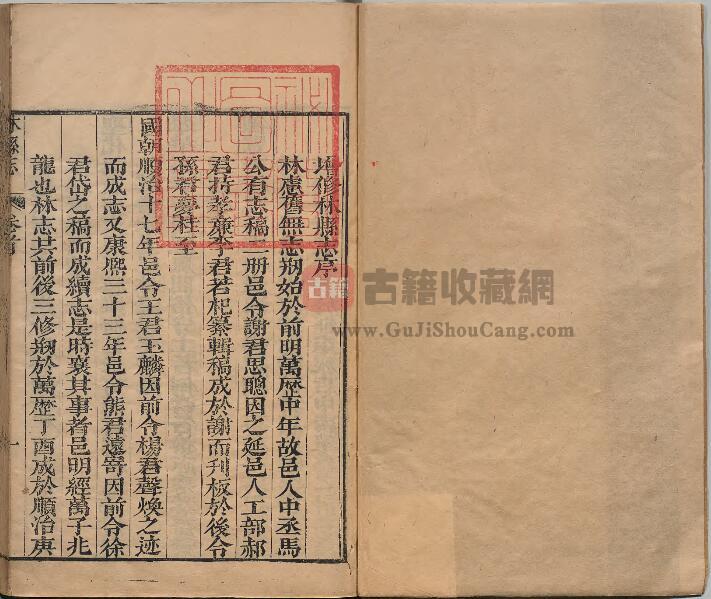 增修林縣志序
林慮舊無志刱始於前明萬歷中年故邑人中丞馬
公有志稿二册邑令謝君思聰因之延邑人工部郝
君持孝廉李君若杞纂輯稿成於謝而刋板於後令
孫君夢桂至
國朝順治十七年邑令王君玉麟因前令楊君聲煥之迹
而成志又康熙三十三年邑令熊君遠寄因前令徐
君岱之稿而成續志是時襄其事者邑明經萬子兆
龍也林志其前後三修刱於萬歷丁酉成於順治庚
林縣志 卷首 一
古籍 古籍收藏網
www.GuJiShouCang.com